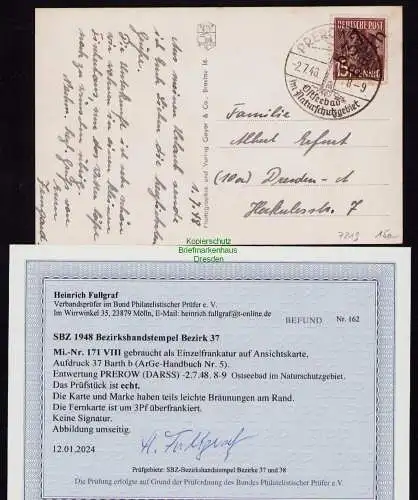 Aus meinem Urlaub sende
ich Euch Lieben die herzlichsten
Grüße.
Die Unterkünfte ist sehr schön
wir wohnen in einem kleinen
noch zu
Photographie und Verlag Geyer & Co., Breslau 16
1.7.48
PREROW
-2.7.48
8-9
Ostseebad
im Naturschutzgebiet
DEUTSCHE POST
15 PFENNIG
Familie
Albert Erfurt
(10a) Dresden-A
Herkulesstr. 7
7219 15a
Kopierschutz
Briefmarkenhaus
Dresden
Heinrich Fullgraf
Verbandsprüfer im Bund Philatelistischer Prüfer e. V.
Im Wirrwinkel 35, 23879 Mölln, E-Mail: heinrich.fullgraf@t-online.de
BEFUND Nr. 162
SBZ 1948 Bezirkshandstempel Bezirk 37
Mi.-Nr. 171 VIII gebraucht als Einzelfrankatur auf Ansichtskarte.
Aufdruck 37 Barth b (ArGe-Handbuch Nr. 5).
Entwertung PREROW (DARSS) -2.7.48. 8-9 Ostseebad im Naturschutzgebiet.
Das Prüfstück ist echt.
Die Karte und Marke haben teils leichte Bräunungen am Rand.
Die Fernkarte ist um 3Pf überfrankiert.
Keine Signatur.
Abbildung umseitig.
12.01.2024
H. Fullgraf
Prüfgebiete: SBZ-Bezirkshandstempel Bezirke 37 und 38
Die Prüfung erfolgte auf Grund der Prüfordnung des Bundes Philatelistischer Prüfer e. V.